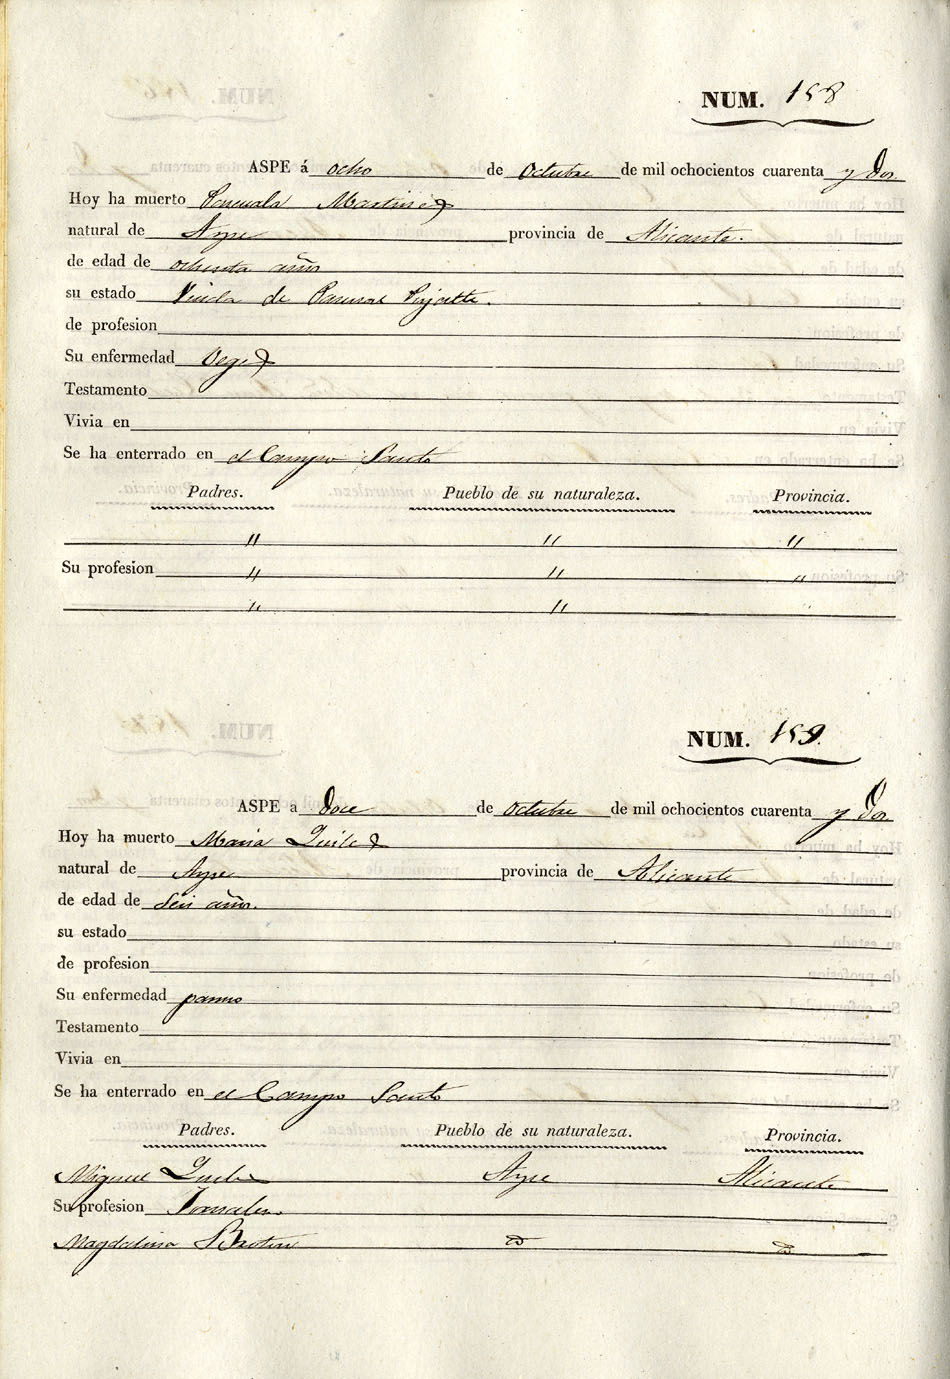 NUM. 158
ASPE á ocho de Octubre de mil ochocientos cuarenta y Dos
Hoy ha muerto Pascuala Martinez
natural de Aspe provincia de Alicante.
de edad de ochenta años
su estado Viuda de Pascual
de profesion
Su enfermedad Vegez
Testamento
Vivia en
Se ha enterrado en el Campo Santo
Padres. Pueblo de su naturaleza. Provincia.
" " "
Su profesion " " "
" "
NUM. 159.
ASPE a Doce de Octubre de mil ochocientos cuarenta y Dos
Hoy ha muerto Maria Quiles
natural de Aspe provincia de Alicante
de edad de Seis años.
su estado
de profesion
Su enfermedad pasmo
Testamento
Vivia en
Se ha enterrado en el Campo Santo
Padres. Pueblo de su naturaleza. Provincia.
Miguel Quiles Aspe Alicante
Su profesion Jornalero
Magdalena Botin